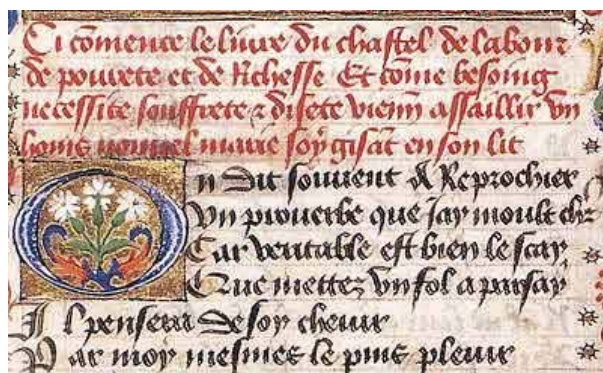 Ci cōmence le liure du chastel de labour
de pourete et de Richesse Et cōme besoing
necessite souffrete z disete vienn assaillir vn
home nouuel marie soy gisāt en son lit
On dit souuent A Reprochier
Vn prouerbe que Jay moult chr
Car veritable est bien le scay
Que mettez vn fol a par say
Il pensera de soy cheuir
Par moy mesmes le puis pleuir